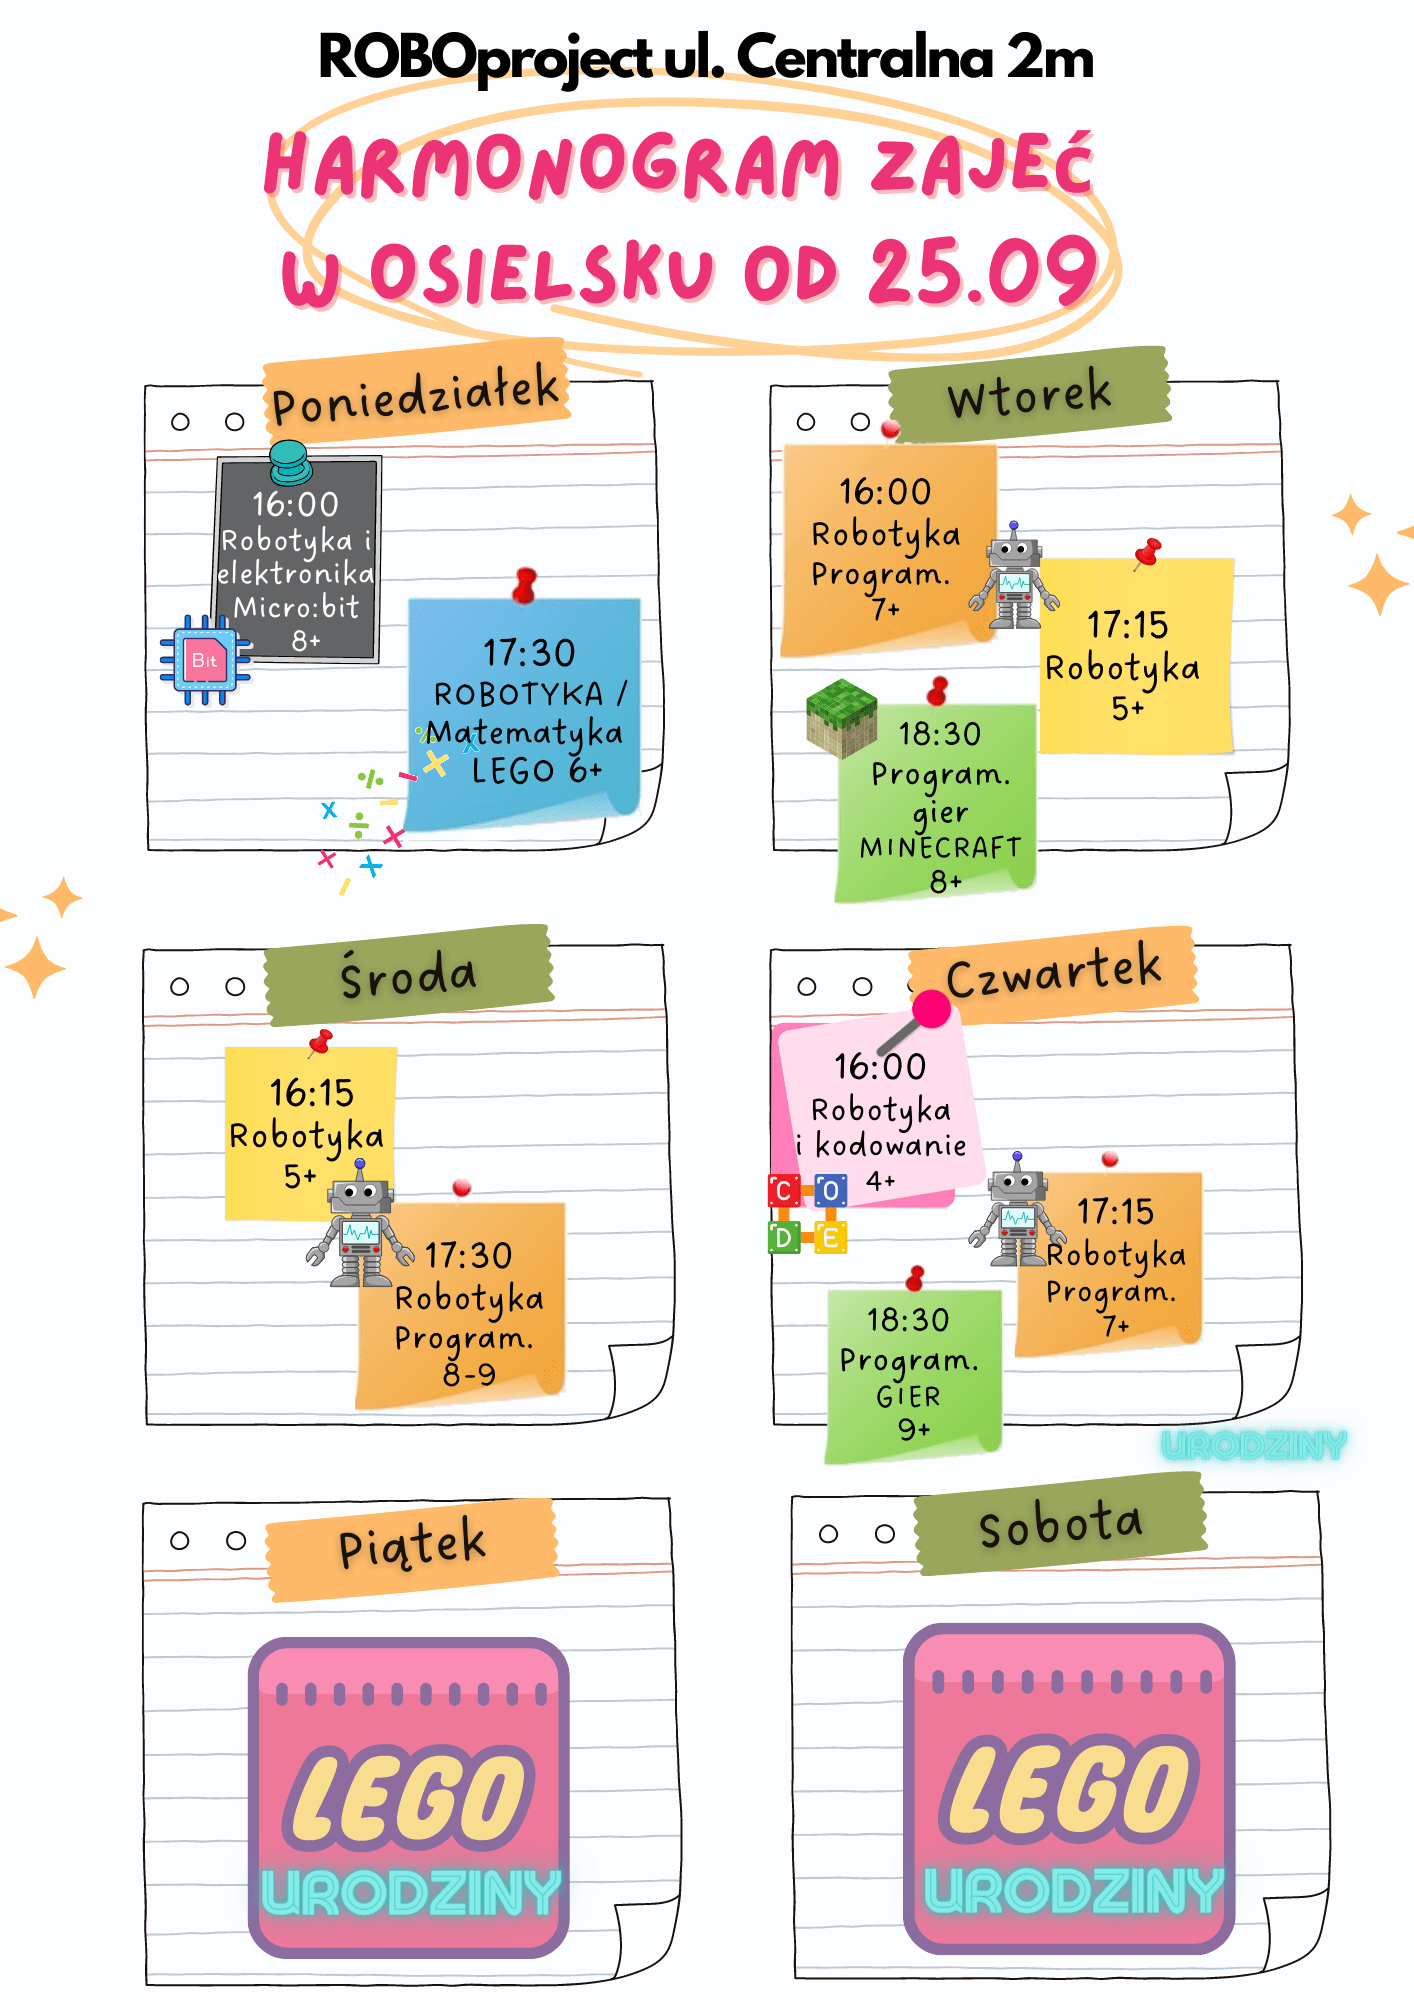 ROBOproject ul. Centralna 2m
HARMONOGRAM ZAJEĆ
W OSIELSKU OD 25.09
Poniedziałek
16:00
Robotyka i
elektronika
Micro:bit
8+
Bit
17:30
ROBOTYKA /
Matematyka
LEGO 6+
Wtorek
16:00
Robotyka
Program.
7+
17:15
Robotyka
5+
18:30
Program.
gier
MINECRAFT
8+
Środa
16:15
Robotyka
5+
17:30
Robotyka
Program.
8-9
Czwartek
16:00
Robotyka
i kodowanie
4+
C O
D E
17:15
Robotyka
Program.
7+
18:30
Program.
GIER
9+
URODZINY
Piątek
LEGO
URODZINY
Sobota
LEGO
URODZINY